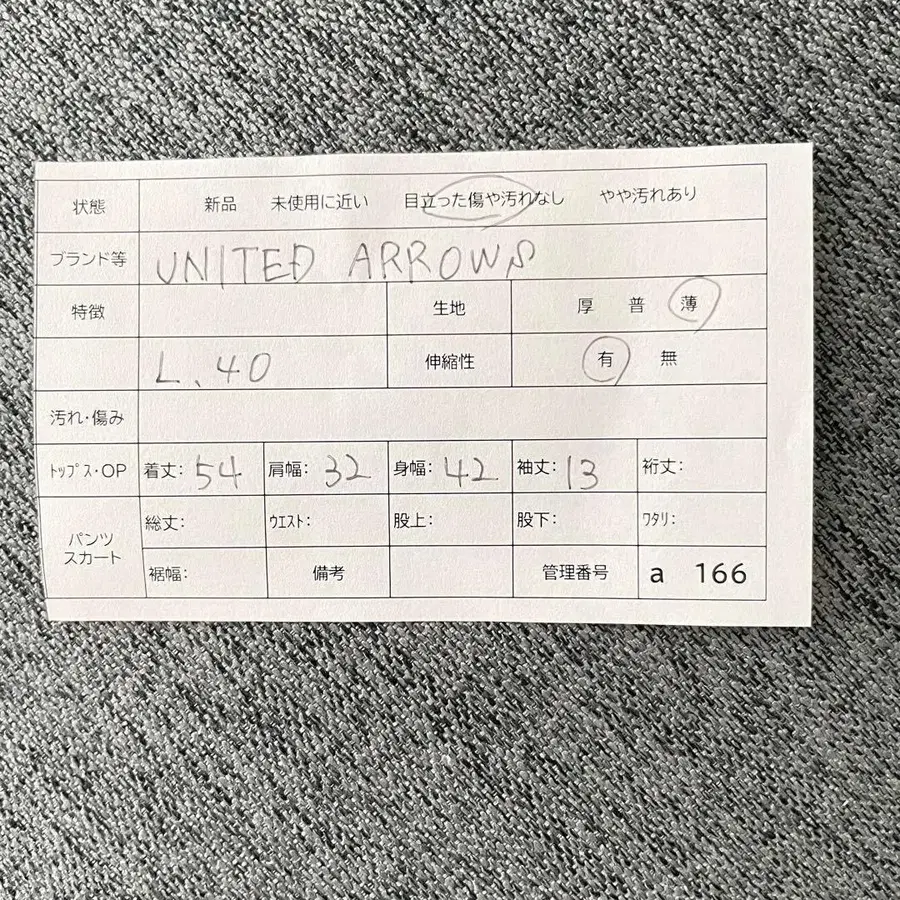 状態 新品 未使用に近い 目立った傷や汚れなし やや汚れあり
ブランド等 UNITED ARROWS
特徴 生地 厚 普 薄
L.40 伸縮性 有 無
汚れ・傷み
トップス・OP 着丈: 54 肩幅: 32 身幅: 42 袖丈: 13 裄丈:
パンツ
スカート
総丈: ウエスト: 股上: 股下: ワタリ:
裾幅: 備考 管理番号 a 166